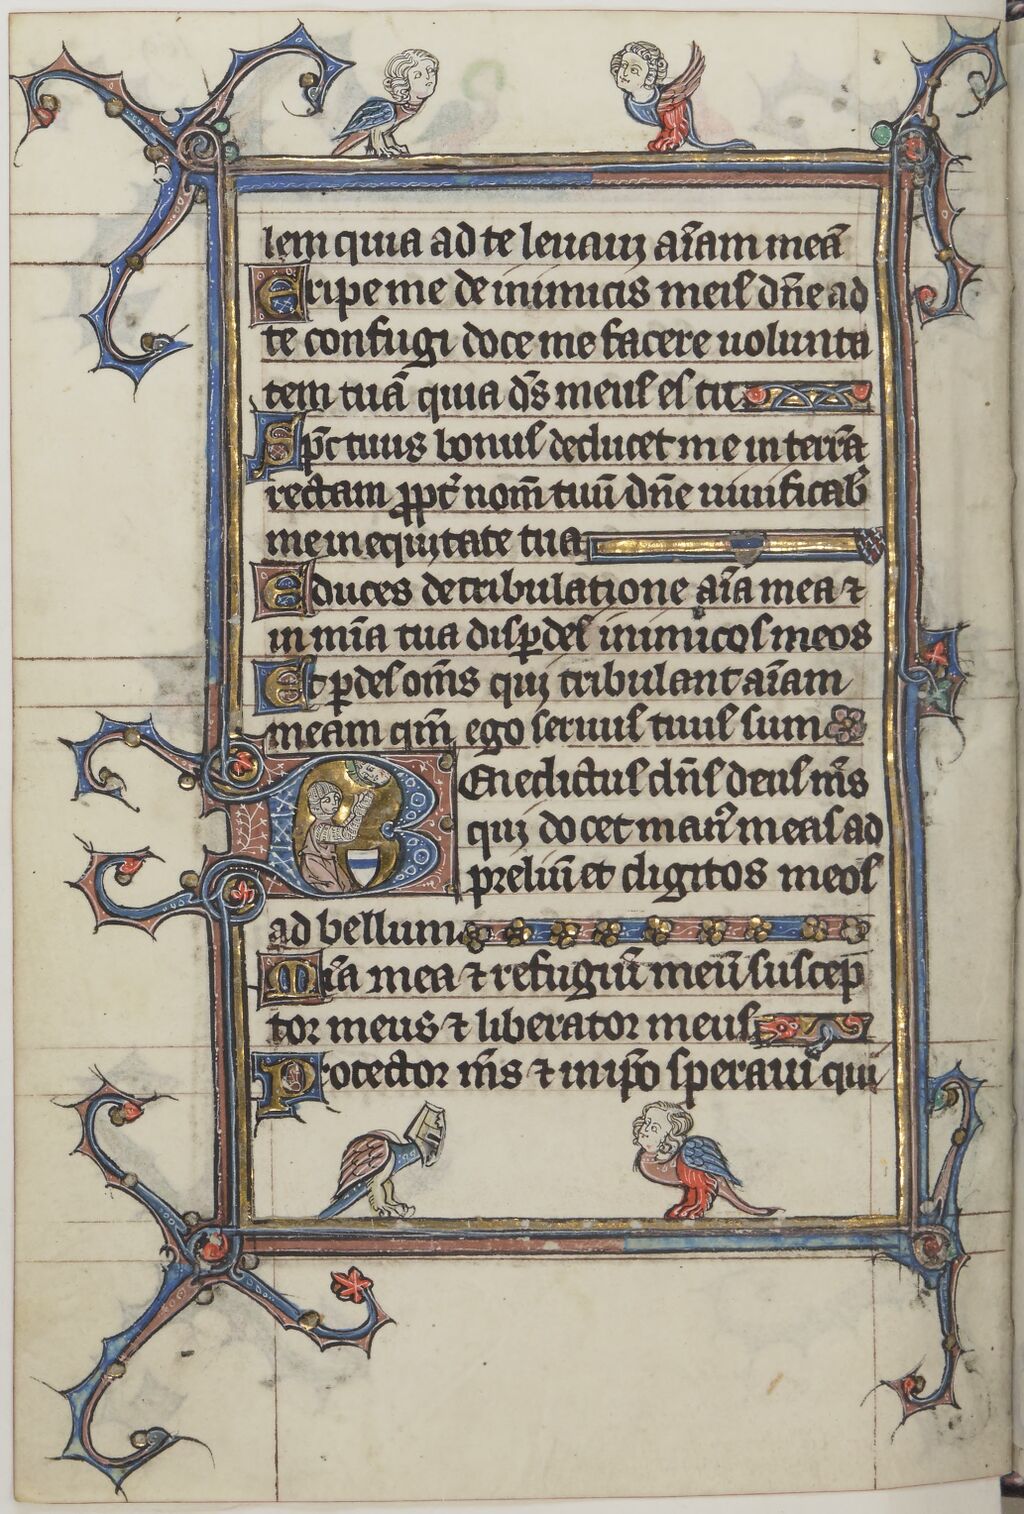 lem quia ad te leuaui aı̄am meā
Eripe me de inimicis meis dn̄e ad
te confugi doce me facere uolunta
tem tuā quia ds̄ meus es tu
Sp̄c tuus bonus deducet me in terrā
rectam ꝓpt̄ nom̄ tuū dn̄e uiuificab̄
me in equitate tua
Educes de tribulatione aı̄a mea ⁊
in mı̄a tua disꝑdes inimicos meos
Et ꝑdes om̄s qui tribulant aı̄am
meam qm̄ ego seruus tuus sum
Benedictus dn̄s deus ms̄
qui docet man᷒ meas ad
preliū et digitos meos
ad bellum
Mı̄a mea ⁊ refugiū meū suscep
tor meus ⁊ liberator meus
Protector ms̄ ⁊ in ip̄o speraui qui